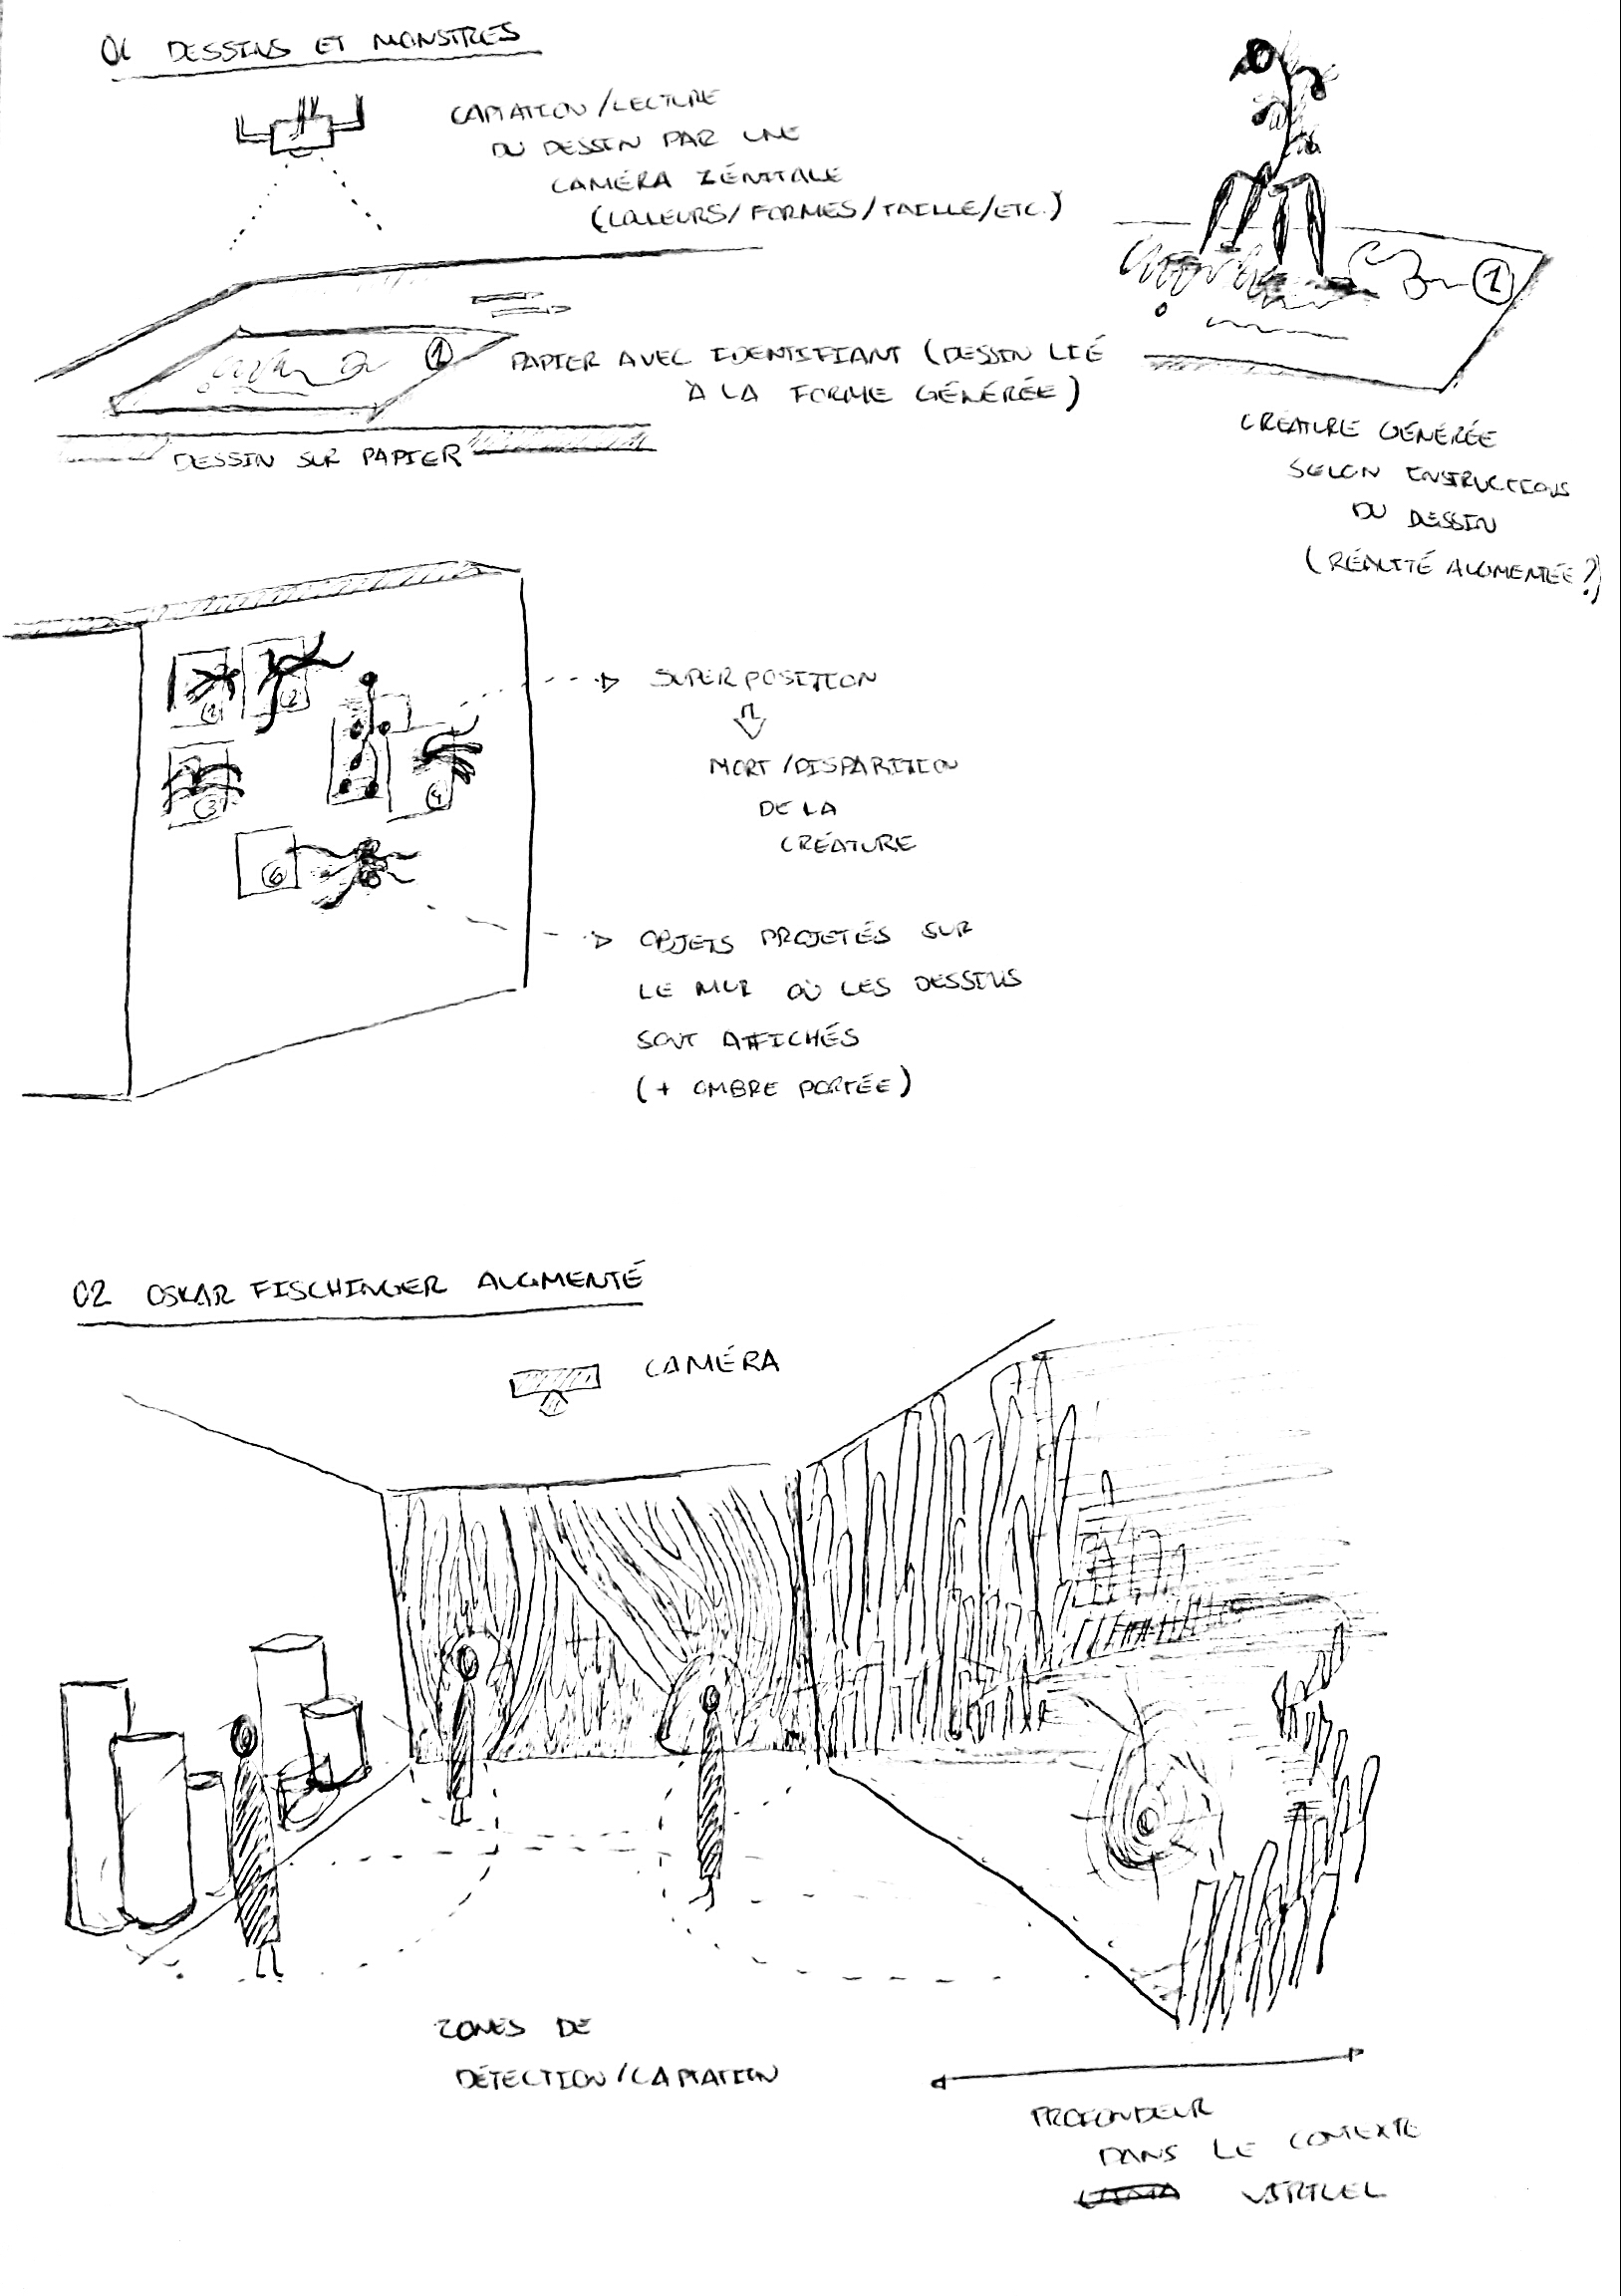 01 DESSINS ET MONSTRES
CAPTATION/LECTURE
DU DESSIN PAR UNE
CAMÉRA ZÉNITALE
(COULEURS/FORMES/TAILLE/ETC.)
1
1
PAPIER AVEC IDENTIFIANT (DESSIN LIÉ
À LA FORME GÉNÉRÉE)
DESSIN SUR PAPIER
CRÉATURE GÉNÉRÉE
SELON INSTRUCTIONS
DU DESSIN
(RÉALITÉ AUGMENTÉE?)
1
2
3
4
6
SUPERPOSITION
MORT/DISPARITION
DE LA
CRÉATURE
OBJETS PROJETÉS SUR
LE MUR OÙ LES DESSINS
SONT AFFICHÉS
(+ OMBRE PORTÉE)
02 OSKAR FISCHINGER AUGMENTÉ
CAMÉRA
ZONES DE
DÉTECTION/CAPTATION
PROFONDEUR
DANS LE CONTEXTE
VIRTUEL